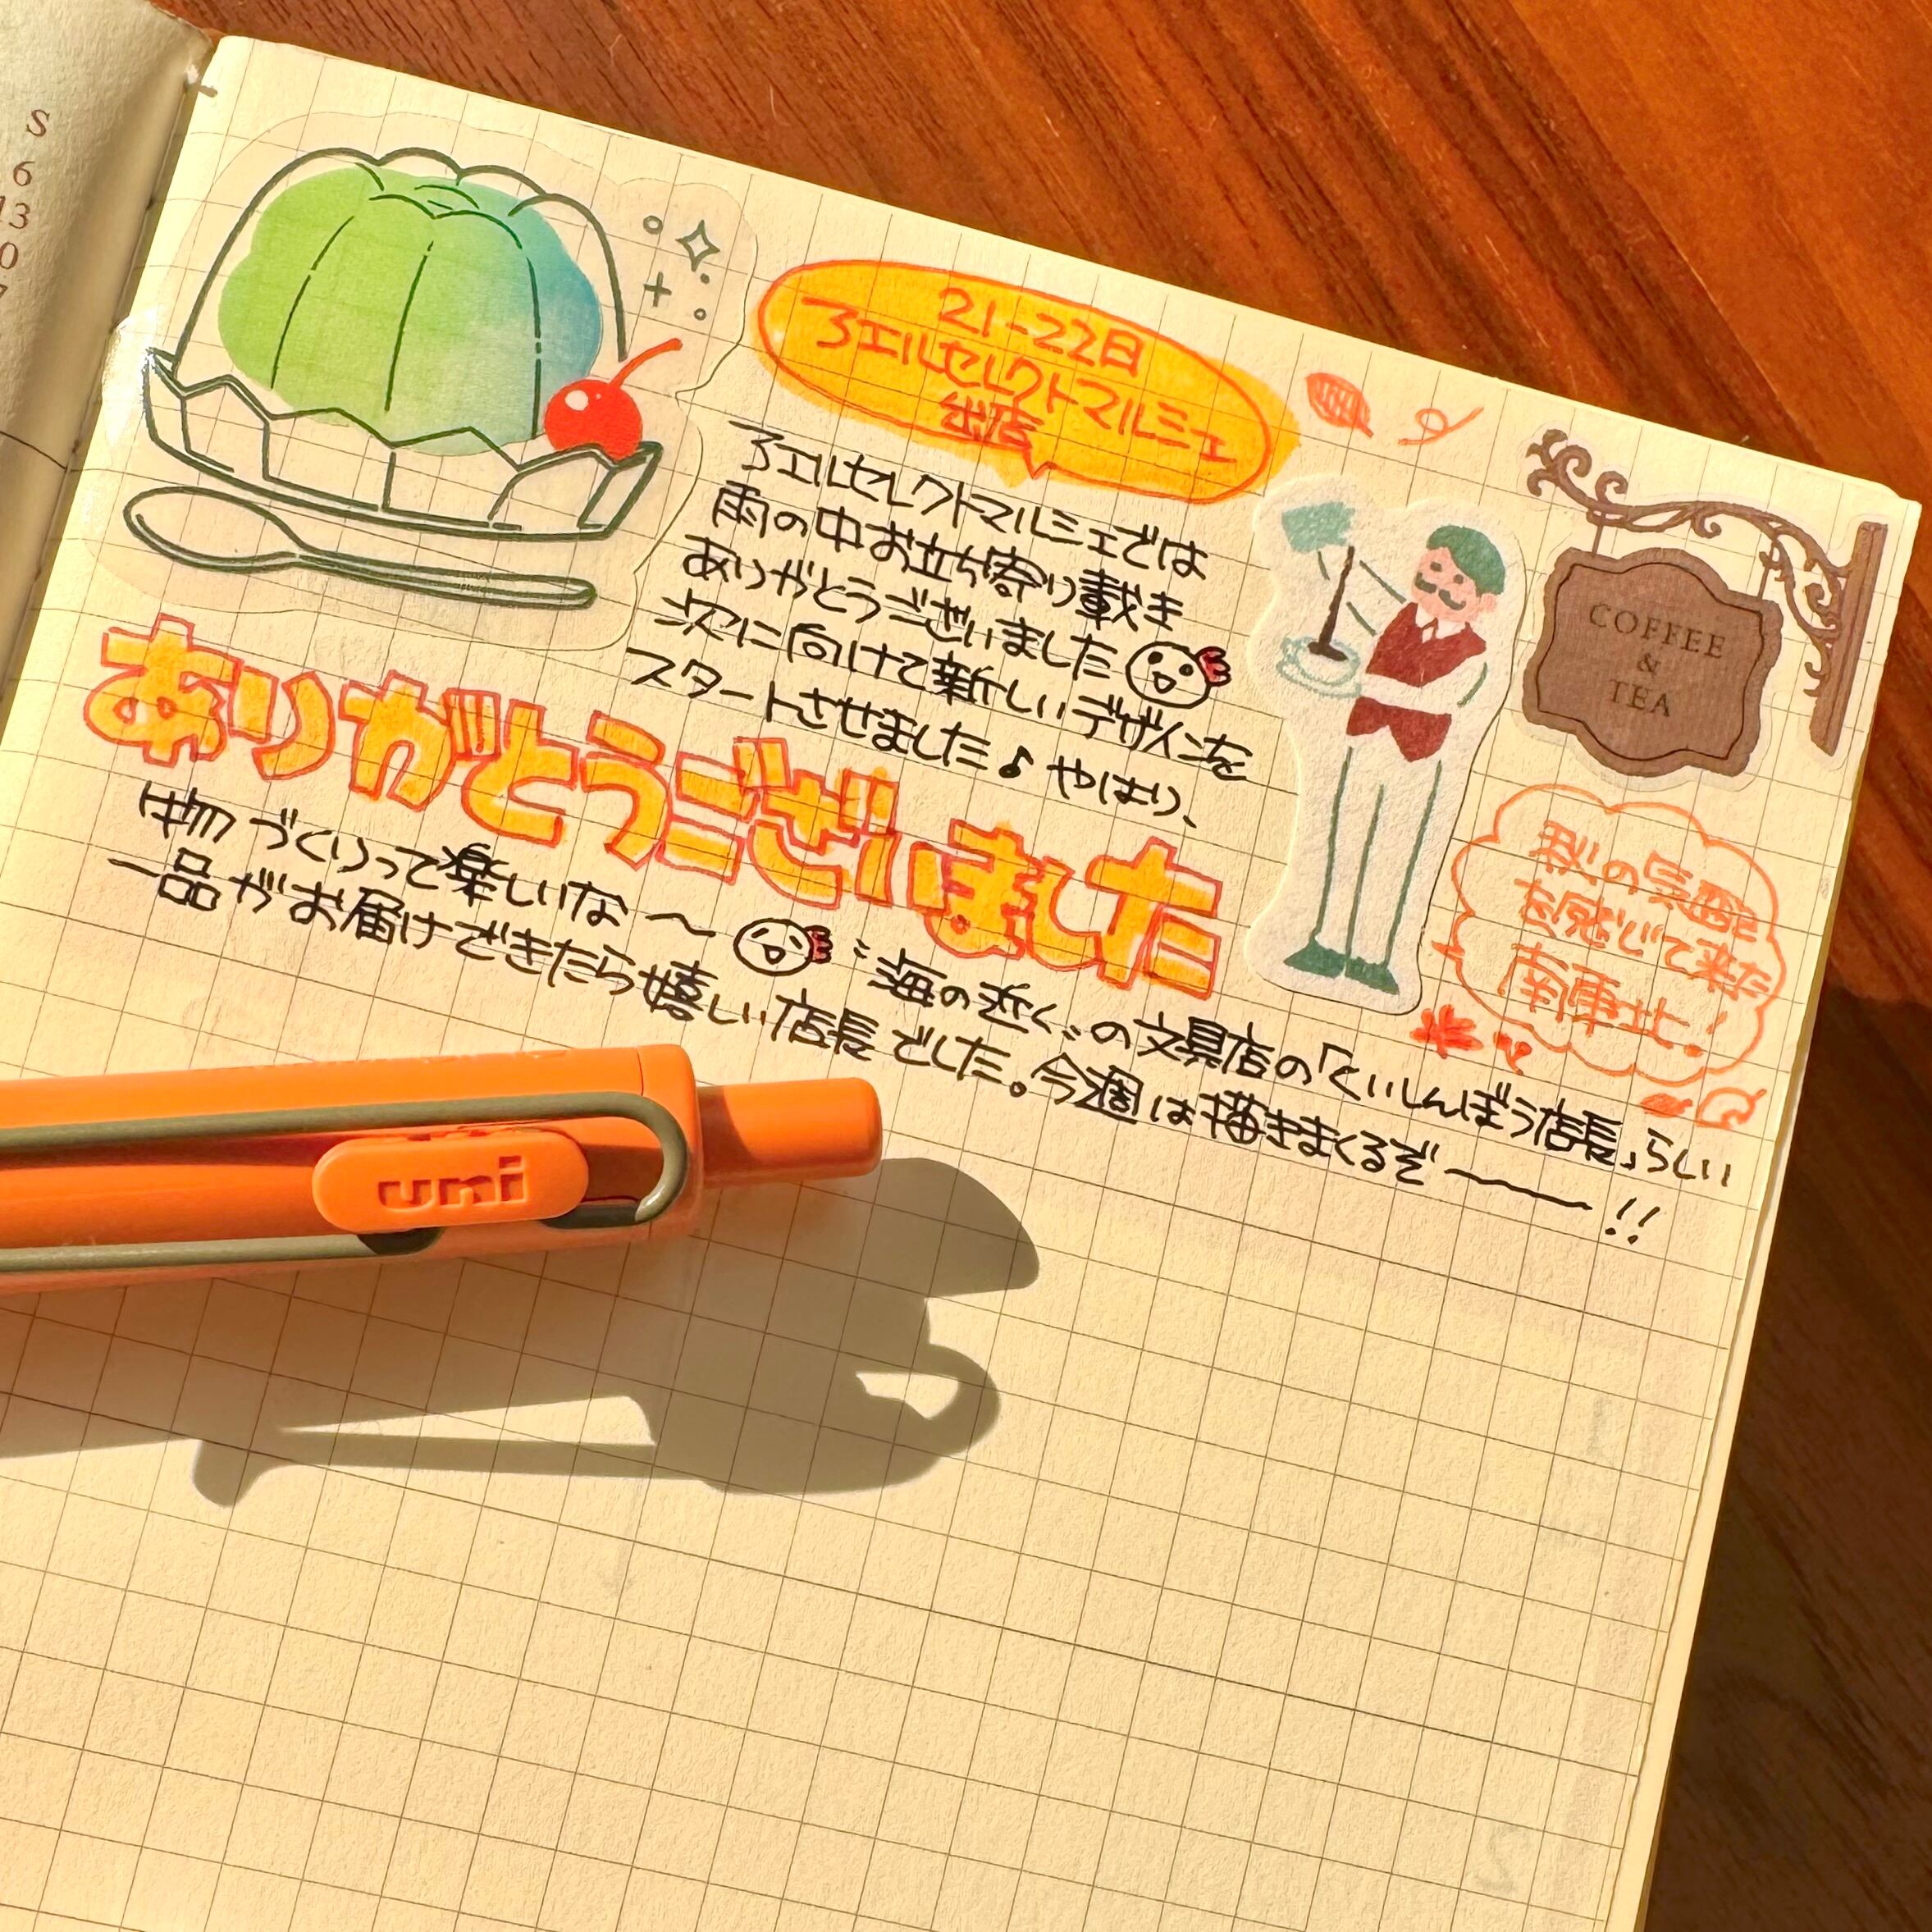 S
6
13
21-22日
ろエルセレクトマルシェ
出店
ろエルセレクトマルシェでは
雨の中お立ち寄り載き
ありがとうございました
次に向けて新しいデザインを
スタートさせました♪ やはり、
ありがとうございました
物づくりって楽しいな～
海の近くの文具店の「くいしんぼう店長」らしい
一品がお届けできたら嬉しい店長でした。今週は描きまくるぞ――!!
COFFEE
&
TEA
秋の気配
を感じて来た
南東北!
uni